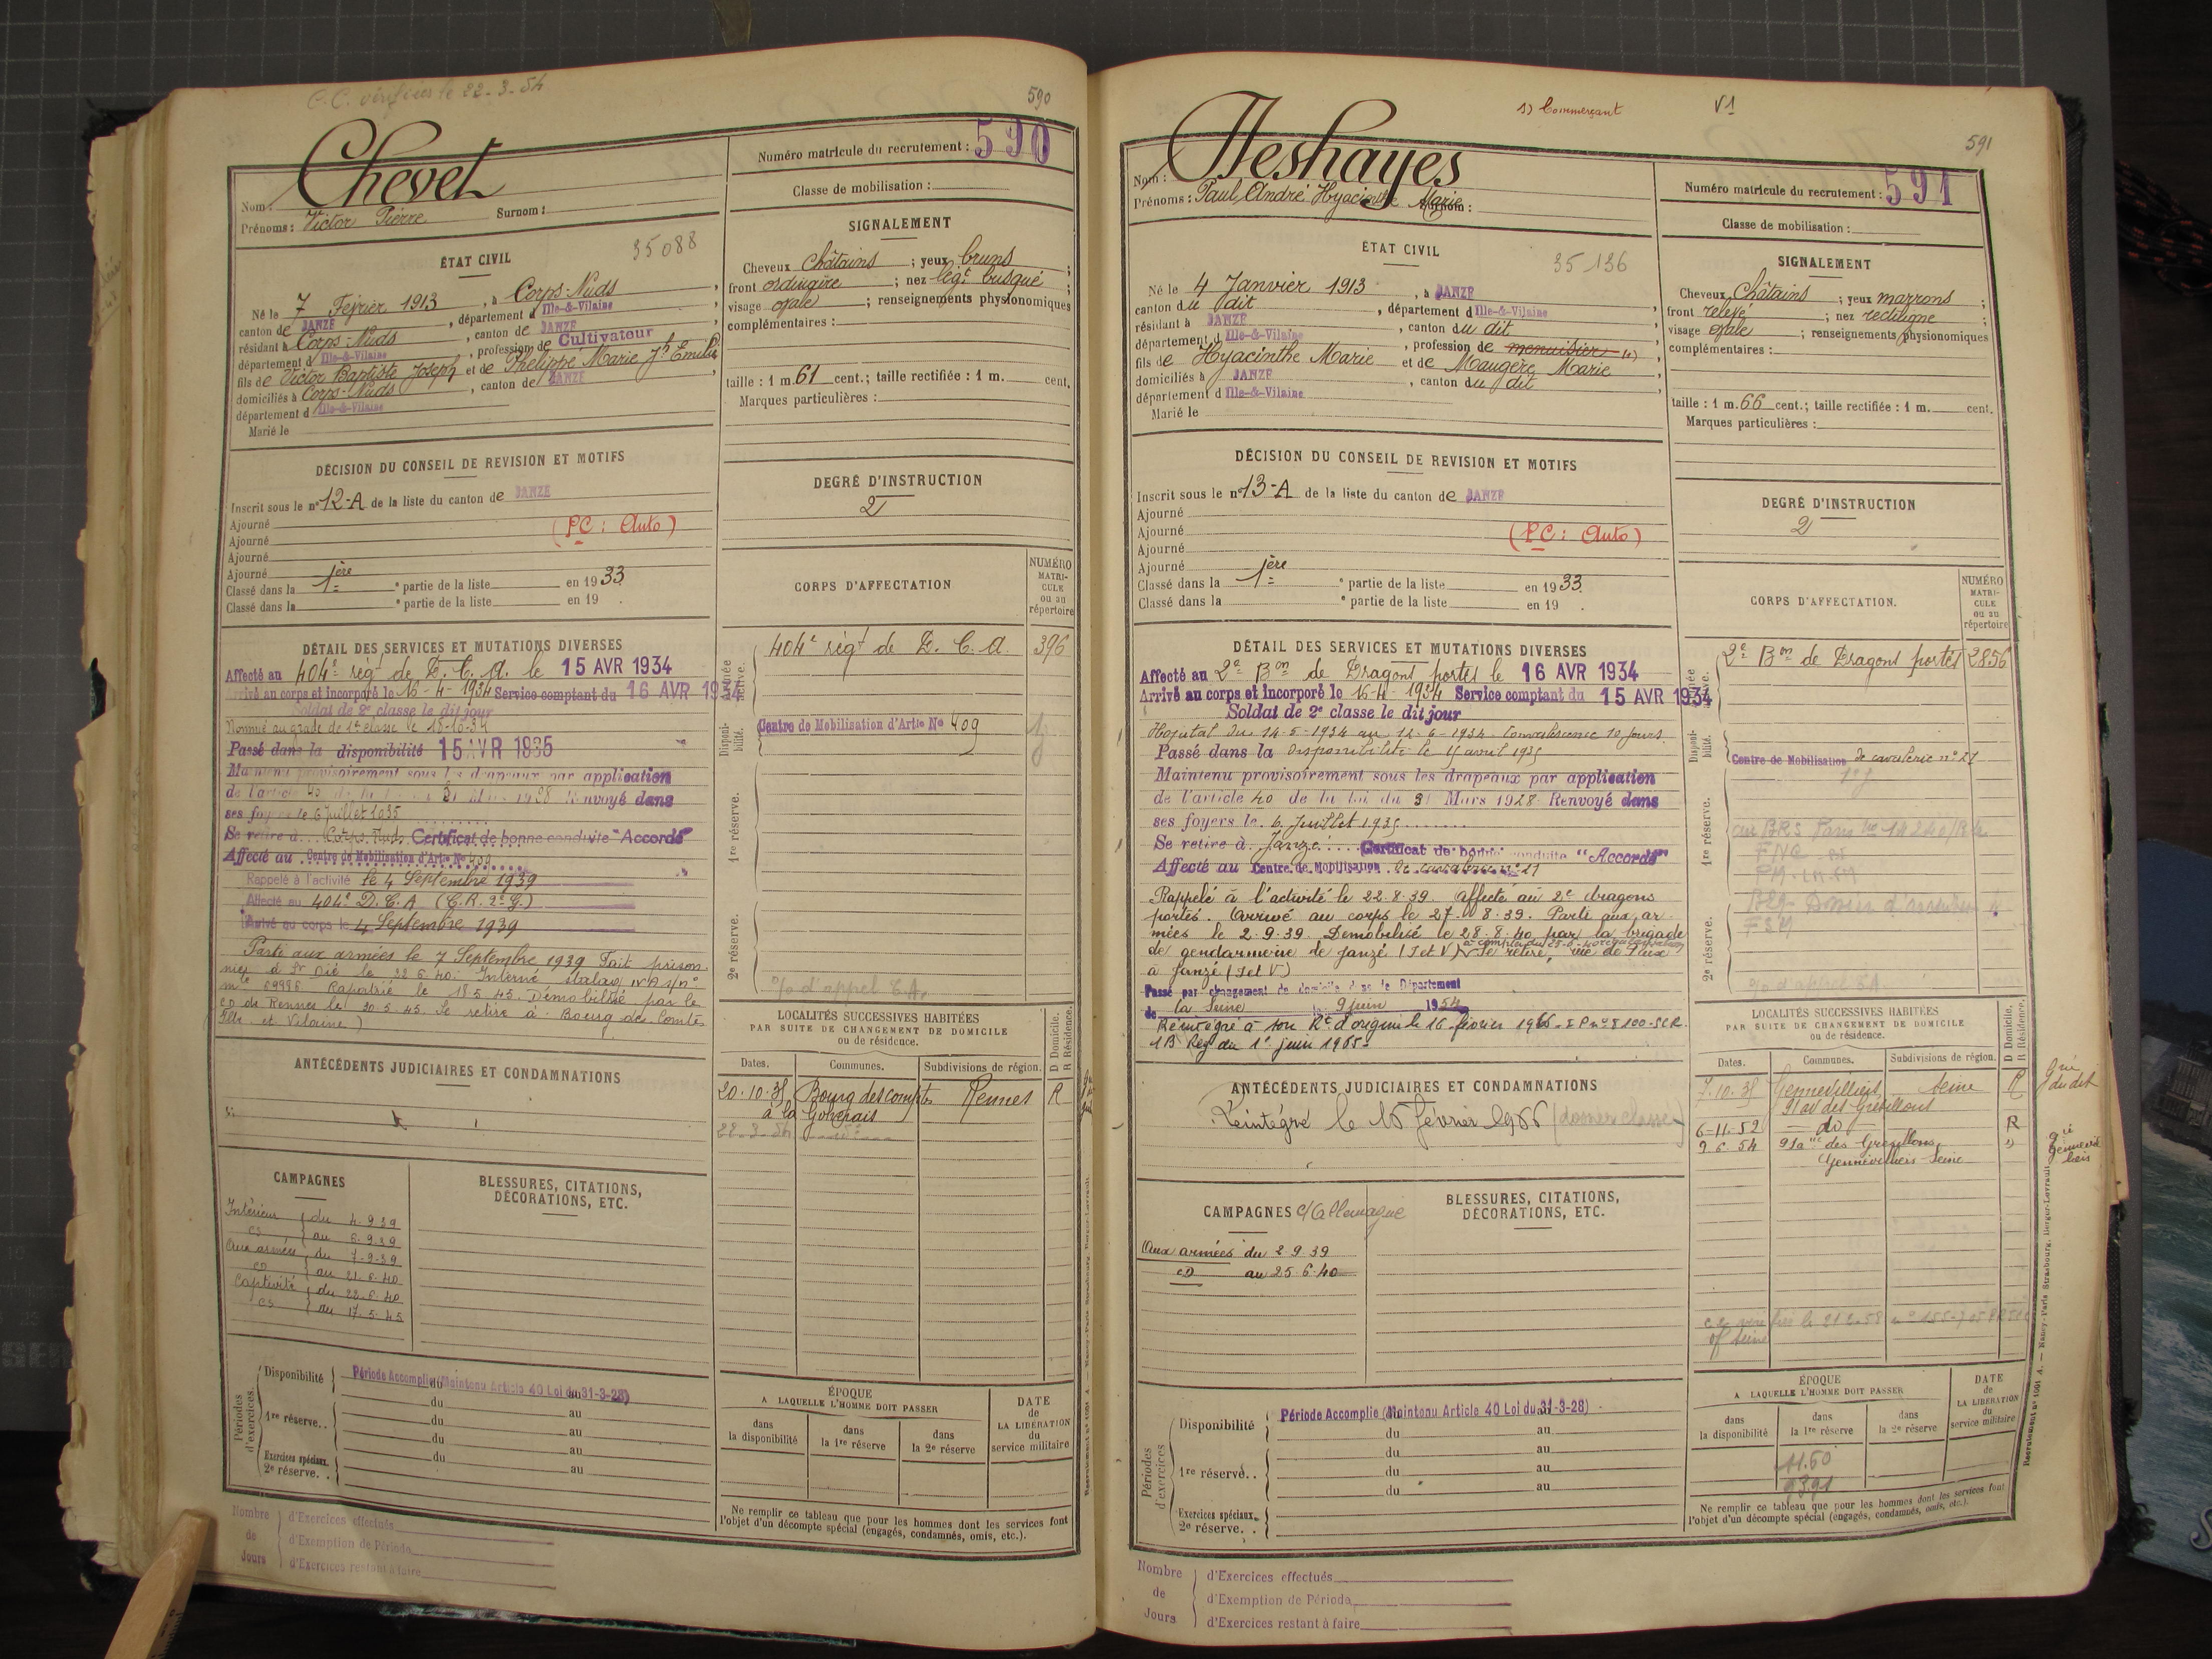 C.C. vérifiées le 22-3-54
590
Chevet
Nom :
Prénoms : Victor Pierre Surnom :
Numéro matricule du recrutement : 590
Classe de mobilisation :
ÉTAT CIVIL
35088
Né le 7 Février 1913, à Corps-Nuds,
canton de JANZE, département d Ille-&-Vilaine,
résidant à Corps-Nuds, canton de JANZE
département d Ille-&-Vilaine, profession de Cultivateur
fils de Victor Baptiste Joseph et de Phelippe Marie Jh Emilie
domiciliés à Corps-Nuds, canton de JANZE
département d Ille-&-Vilaine
Marié le
SIGNALEMENT
Cheveux châtains ; yeux bruns ;
front ordinaire ; nez légt busqué ;
visage ovale ; renseignements physionomiques
complémentaires :
taille : 1 m. 61 cent. ; taille rectifiée : 1 m. cent.
Marques particulières :
DÉCISION DU CONSEIL DE REVISION ET MOTIFS
Inscrit sous le n° 12-A de la liste du canton de JANZE
Ajourné
Ajourné (PC : Auto)
Ajourné
Ajourné
Classé dans la 1ère e partie de la liste en 1933.
Classé dans la e partie de la liste en 19 .
DEGRÉ D'INSTRUCTION
2
CORPS D'AFFECTATION
NUMÉRO MATRICULE ou au répertoire
Armée active.
404e régt de D. C. A. 396
Disponibilité.
Centre de Mobilisation d'Artie No 409
1re réserve.
2e réserve.
o/o d'appel C.A.
DÉTAIL DES SERVICES ET MUTATIONS DIVERSES
Affecté au 404e régt de D. C. A. le 15 AVR 1934
Arrivé au corps et incorporé le 16-4-1934 Service comptant du 16 AVR 1934
Soldat de 2e classe le dit jour
Nommé au grade de 1e classe le 18-10-34
Passé dans la disponibilité 15 AVR 1935
Maintenu provisoirement sous les drapeaux par application
de l'article 40 de la loi du 31 Mars 1928 Renvoyé dans
ses foyers le 6 Juillet 1935
Se retire à Corps-Nuds Certificat de bonne conduite "Accordé"
Affecté au Centre de Mobilisation d'Artie No 409
Rappelé à l'activité le 4 Septembre 1939
Affecté au 404e D.C.A (C.R. 2e G.)
Arrivé au corps le 4 Septembre 1939
Parti aux armées le 7 Septembre 1939 Fait prison-
nier à St Dié le 22.6.40. Interné stalag IV A s/n°
mle 69996 Rapatrié le 18.5.45. Démobilisé par le
CD de Rennes le 30.5.45. Se retire à Bourg des Comtes
(Ille et Vilaine)
ANTÉCÉDENTS JUDICIAIRES ET CONDAMNATIONS
LOCALITÉS SUCCESSIVES HABITÉES
PAR SUITE DE CHANGEMENT DE DOMICILE
ou de résidence.
D Domicile. R Résidence.
Dates. Communes. Subdivisions de région.
20.10.35 Bourg des compts Rennes R
à la Goverais
22-3-54
CAMPAGNES
Intérieur du 4.9.39
CD au 6.9.39
Aux armées du 7-9-39
CD au 21-6-40
Captivité du 22-6-40
CD au 17-5-45
BLESSURES, CITATIONS,
DÉCORATIONS, ETC.
Périodes d'exercices.
Disponibilité Période Accomplie (Maintenu Article 40 Loi du 31-3-28)
1re réserve.. du au
du au
du au
Exercices spéciaux. 2e réserve. . du au
ÉPOQUE
A LAQUELLE L'HOMME DOIT PASSER
dans la disponibilité
dans la 1re réserve
dans la 2e réserve
DATE de LA LIBÉRATION du service militaire
Ne remplir ce tableau que pour les hommes dont les services font
l'objet d'un décompte spécial (engagés, condamnés, omis, etc.).
Nombre de Jours
d'Exercices effectués
d'Exemption de Période
d'Exercices restant à faire
1) Commerçant
V1
591
Deshayes
Nom :
Prénoms : Paul André Hyacinthe Marie Surnom :
Numéro matricule du recrutement : 591
Classe de mobilisation :
ÉTAT CIVIL
35136
Né le 4 Janvier 1913, à JANZE
canton du dit, département d Ille-&-Vilaine,
résidant à JANZE, canton du dit
département d Ille-&-Vilaine, profession de menuisier (1)
fils de Hyacinthe Marie et de Maugère Marie
domiciliés à JANZE, canton du dit
département d Ille-&-Vilaine
Marié le
SIGNALEMENT
Cheveux Châtains ; yeux marrons ;
front relevé ; nez rectiligne ;
visage ovale ; renseignements physionomiques
complémentaires :
taille : 1 m. 66 cent. ; taille rectifiée : 1 m. cent.
Marques particulières :
DÉCISION DU CONSEIL DE REVISION ET MOTIFS
Inscrit sous le n° 13-A de la liste du canton de JANZE
Ajourné
Ajourné (PC : Auto)
Ajourné
Ajourné
Classé dans la 1ère e partie de la liste en 1933.
Classé dans la e partie de la liste en 19 .
DEGRÉ D'INSTRUCTION
2
CORPS D'AFFECTATION.
NUMÉRO MATRICULE ou au répertoire
Armée active.
2e Bon de Dragons portés 2856
Disponibilité.
Centre de Mobilisation de cavalerie n° 27
1re réserve.
2e réserve.
DÉTAIL DES SERVICES ET MUTATIONS DIVERSES
Affecté au 2e Bon de Dragons portés le 16 AVR 1934
Arrivé au corps et incorporé le 16-4-1934 Service comptant du 15 AVR 1934
Soldat de 2e classe le dit jour
Hopital du 14-5-1934 au 12-6-1934. Convalescence 10 jours.
Passé dans la disponibilité le 15 avril 1935
Maintenu provisoirement sous les drapeaux par application
de l'article 40 de la loi du 31 Mars 1928 Renvoyé dans
ses foyers le 6 Juillet 1935
Se retire à Janzé Certificat de bonne conduite "Accordé"
Affecté au Centre de Mobilisation de cavalerie n° 27
Rappelé à l'activité le 22.8.39 affecté au 2e dragons
portés. Arrivé au corps le 27.8.39. Parti aux ar
mées le 2.9.39. Démobilisé le 28.8.40 par la brigade
de gendarmerie de Janzé (I et V) Se retire, rue de
à Janzé (I et V)
Passé par changement de domicile dans le Département
de la Seine le 9 juin 1954
Réintégré à son Rt d'origine le 16 février 1966
1B Reg du 1e juin 1965
ANTÉCÉDENTS JUDICIAIRES ET CONDAMNATIONS
Réintégré le 16 février 1966 (dossier classé)
LOCALITÉS SUCCESSIVES HABITÉES
PAR SUITE DE CHANGEMENT DE DOMICILE
ou de résidence.
D Domicile. R Résidence.
Dates. Communes. Subdivisions de région.
7.10.38 Gennevilliers Seine R
91 av des Grésillons
6-11-52 do R
9.6.54 91 a ue des Gresillons
Gennevilliers Seine
CAMPAGNES C/Allemagne
Aux armées du 2.9.39
CD au 25.6.40
BLESSURES, CITATIONS,
DÉCORATIONS, ETC.
Périodes d'exercices
Disponibilité Période Accomplie (Maintenu Article 40 Loi du 31-3-28)
du au
1re réserve.. du au
du au
Exercices spéciaux. 2e réserve. .
ÉPOQUE
A LAQUELLE L'HOMME DOIT PASSER
dans la disponibilité
dans la 1re réserve
dans la 2e réserve
DATE de LA LIBÉRATION du service militaire
11.60
Ne remplir ce tableau que pour les hommes dont les services font
l'objet d'un décompte spécial (engagés, condamnés, omis, etc.).
Nombre de Jours
d'Exercices effectués
d'Exemption de Période
d'Exercices restant à faire